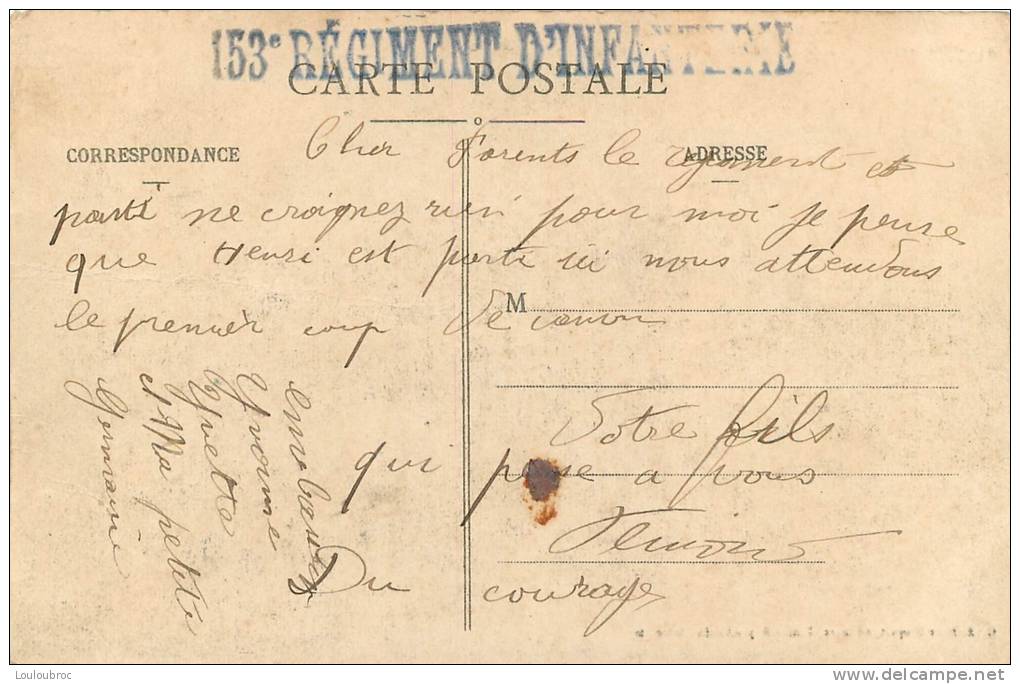 153e RÉGIMENT D'INFANTERIE
CARTE POSTALE
CORRESPONDANCE
ADRESSE
Cher Parents le regiment et
parti ne craignez rien pour moi je pense
que Henri est parti ici nous attendons
le premier coup de canon
M
Votre fils
qui pense a vous
Du courage
Embrassez
Yvonne
Yvette
et Ma petite
Germaine
Louloubroc
delcampe.net